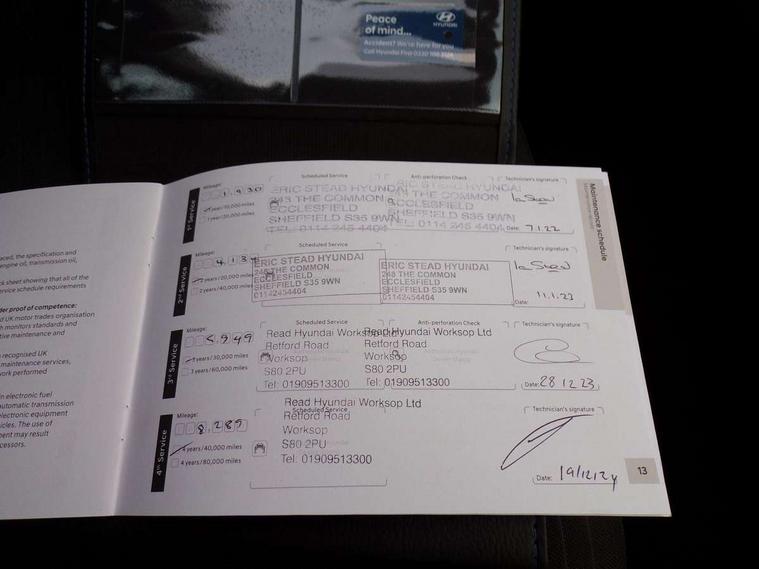 Peace
of mind...
HYUNDAI
Accident? We're here for you
Maintenance schedule
1st Service
Mileage:
1,930
1 year/10,000 miles
Scheduled Service
Anti-perforation Check
Technician's signature
ERIC STEAD HYUNDAI
243 THE COMMON
ECCLESFIELD
SHEFFIELD S35 9WN
TEL: 0114 245 4404
Date: 7.1.22
2nd Service
Mileage:
2 years/20,000 miles
2 years/40,000 miles
Scheduled Service
Technician's signature
ERIC STEAD HYUNDAI
248 THE COMMON
ECCLESFIELD
SHEFFIELD S35 9WN
01142454404
ERIC STEAD HYUNDAI
248 THE COMMON
ECCLESFIELD
SHEFFIELD S35 9WN
01142454404
Date: 11.1.23
3rd Service
Mileage:
5,949
3 years/30,000 miles
3 years/60,000 miles
Scheduled Service
Anti-perforation Check
Technician's signature
Read Hyundai Worksop Ltd
Retford Road
Worksop
S80 2PU
Tel: 01909513300
Read Hyundai Worksop Ltd
Retford Road
Worksop
S80 2PU
Tel: 01909513300
Date: 28 12 23
4th Service
Mileage:
8,289
4 years/40,000 miles
4 years/80,000 miles
Scheduled Service
Technician's signature
Read Hyundai Worksop Ltd
Retford Road
Worksop
S80 2PU
Tel: 01909513300
Date: 19/12/24
13
aced, the specification and
engine oil, transmission oil,
k sheet showing that all of the
ervice schedule requirements
der proof of competence:
d UK motor trades organisation
h monitors standards and
tive maintenance and
recognised UK
maintenance services,
work performed
n electronic fuel
automatic transmission
electronic equipment
icles. The use of
ent may result
cessors.